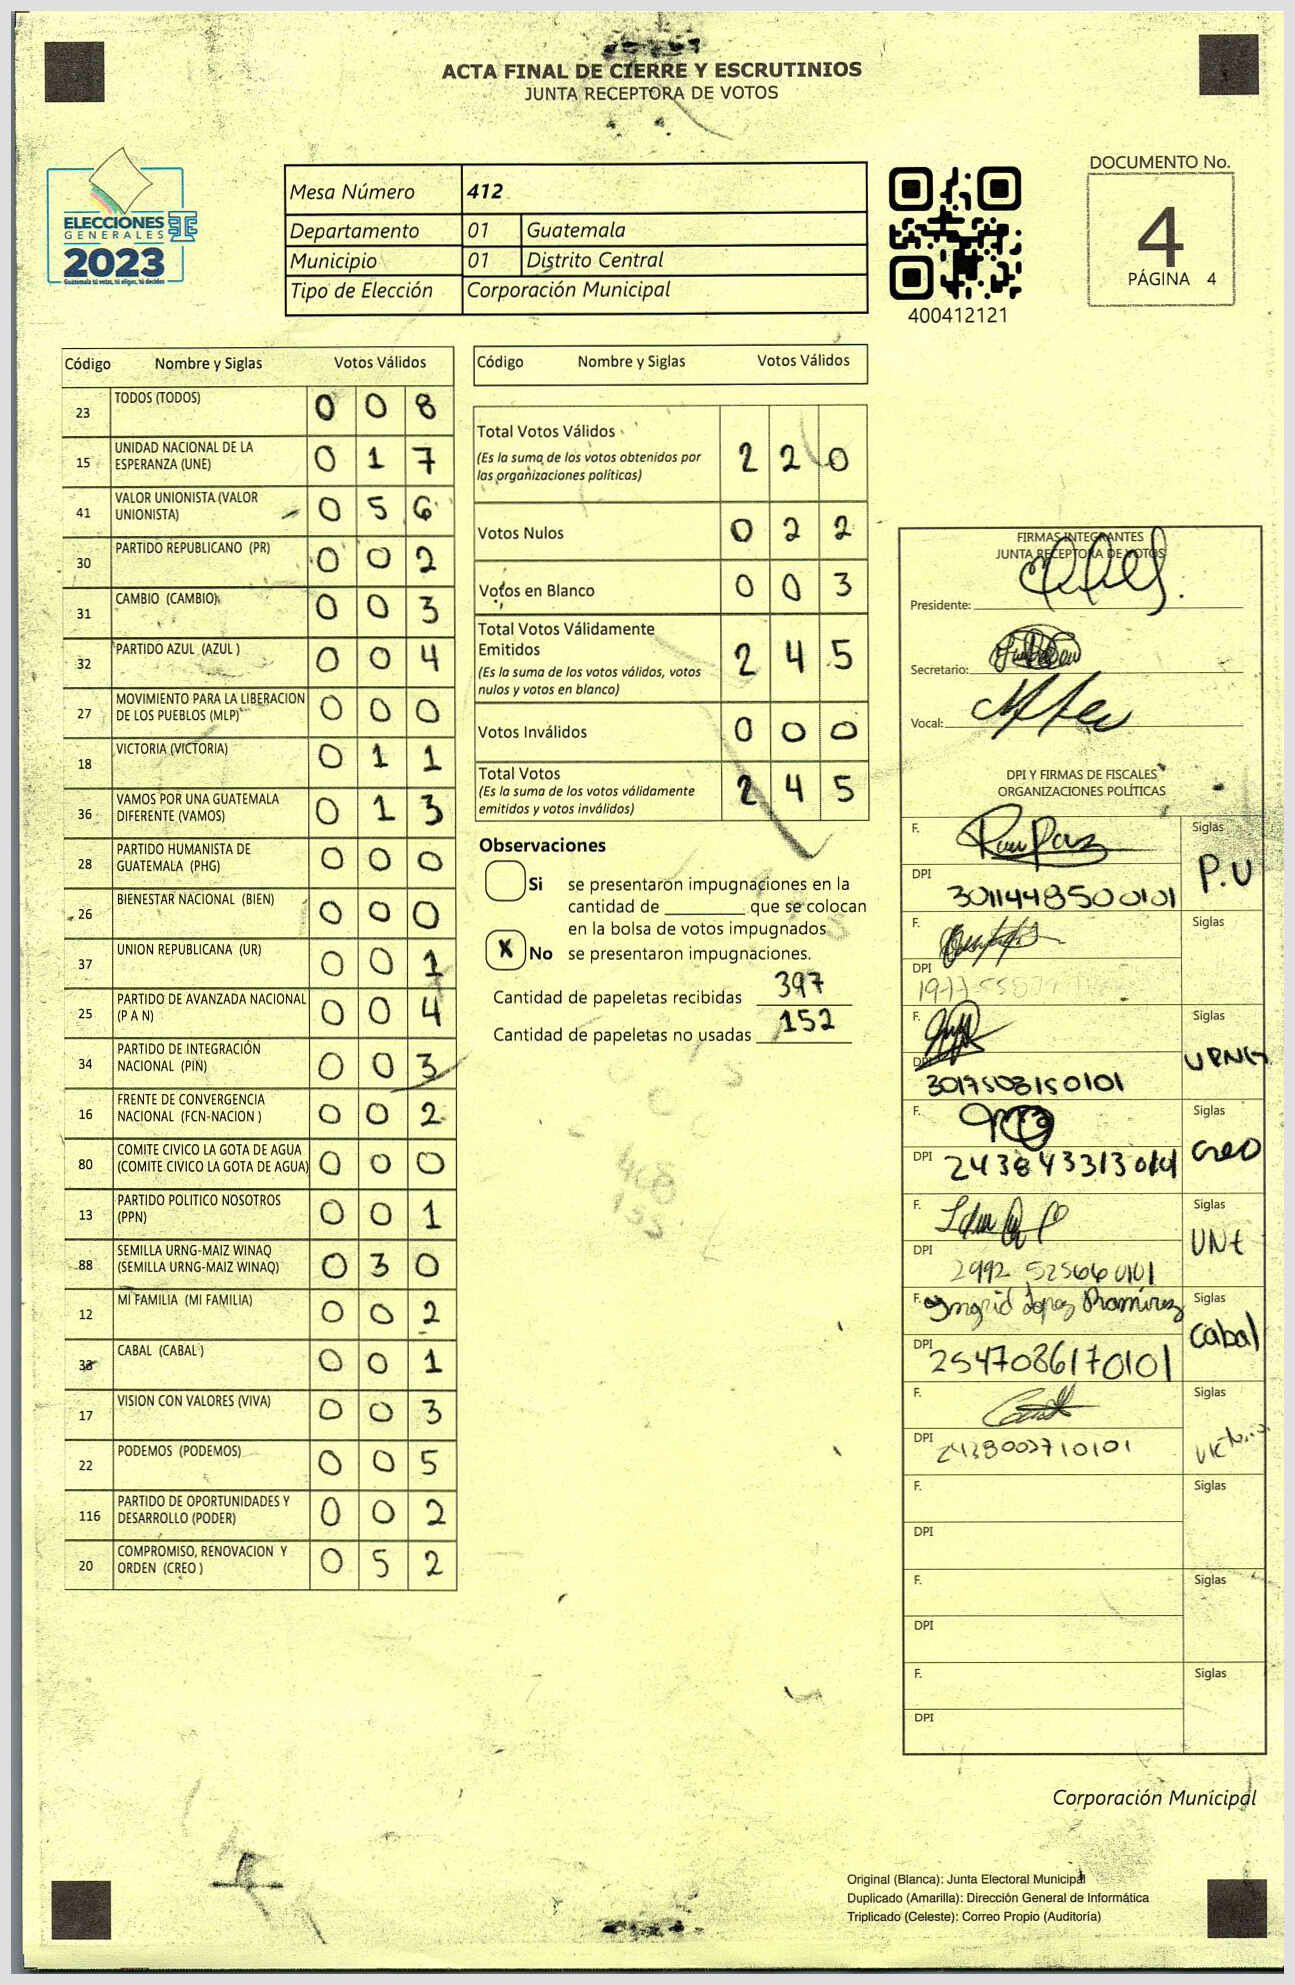 ACTA FINAL DE CIERRE Y ESCRUTINIOS
JUNTA RECEPTORA DE VOTOS
ELECCIONES
GENERALES
2023
Guatemala tú votas, tú eliges, tú decides
Mesa Número 412
Departamento 01 Guatemala
Municipio 01 Distrito Central
Tipo de Elección Corporación Municipal
400412121
DOCUMENTO No.
4
PÁGINA 4
Código Nombre y Siglas Votos Válidos
23 TODOS (TODOS) 0 0 8
15 UNIDAD NACIONAL DE LA ESPERANZA (UNE) 0 1 7
41 VALOR UNIONISTA (VALOR UNIONISTA) 0 5 6
30 PARTIDO REPUBLICANO (PR) 0 0 2
31 CAMBIO (CAMBIO) 0 0 3
32 PARTIDO AZUL (AZUL ) 0 0 4
27 MOVIMIENTO PARA LA LIBERACION DE LOS PUEBLOS (MLP) 0 0 0
18 VICTORIA (VICTORIA) 0 1 1
36 VAMOS POR UNA GUATEMALA DIFERENTE (VAMOS) 0 1 3
28 PARTIDO HUMANISTA DE GUATEMALA (PHG) 0 0 0
26 BIENESTAR NACIONAL (BIEN) 0 0 0
37 UNION REPUBLICANA (UR) 0 0 1
25 PARTIDO DE AVANZADA NACIONAL (P A N) 0 0 4
34 PARTIDO DE INTEGRACIÓN NACIONAL (PIN) 0 0 3
16 FRENTE DE CONVERGENCIA NACIONAL (FCN-NACION ) 0 0 2
80 COMITE CIVICO LA GOTA DE AGUA (COMITE CIVICO LA GOTA DE AGUA) 0 0 0
13 PARTIDO POLITICO NOSOTROS (PPN) 0 0 1
88 SEMILLA URNG-MAIZ WINAQ (SEMILLA URNG-MAIZ WINAQ) 0 3 0
12 MI FAMILIA (MI FAMILIA) 0 0 2
33 CABAL (CABAL ) 0 0 1
17 VISION CON VALORES (VIVA) 0 0 3
22 PODEMOS (PODEMOS) 0 0 5
116 PARTIDO DE OPORTUNIDADES Y DESARROLLO (PODER) 0 0 2
20 COMPROMISO, RENOVACION Y ORDEN (CREO ) 0 5 2
Código Nombre y Siglas Votos Válidos
Total Votos Válidos 2 2 0
(Es la suma de los votos obtenidos por
las organizaciones políticas)
Votos Nulos 0 2 2
Votos en Blanco 0 0 3
Total Votos Válidamente
Emitidos 2 4 5
(Es la suma de los votos válidos, votos
nulos y votos en blanco)
Votos Inválidos 0 0 0
Total Votos 2 4 5
(Es la suma de los votos válidamente
emitidos y votos inválidos)
Observaciones
Si se presentaron impugnaciones en la
cantidad de ________ que se colocan
en la bolsa de votos impugnados
X No se presentaron impugnaciones.
Cantidad de papeletas recibidas 397
Cantidad de papeletas no usadas 152
FIRMAS INTEGRANTES
JUNTA RECEPTORA DE VOTOS
Presidente:
Secretario:
Vocal:
DPI Y FIRMAS DE FISCALES
ORGANIZACIONES POLÍTICAS
F. Siglas
P.U
DPI 3011448500101
F. Siglas
DPI
F. Siglas
URNG
DPI 3017508150101
F. Siglas
Creo
DPI
F. Siglas
UNE
DPI 2992 525660101
F. Ingrid Lopez Ramirez Siglas
Cabal
DPI 2547086170101
F. Siglas
Victoria
DPI
F. Siglas
DPI
F. Siglas
DPI
F. Siglas
DPI
Corporación Municipal
Original (Blanca): Junta Electoral Municipal
Duplicado (Amarilla): Dirección General de Informática
Triplicado (Celeste): Correo Propio (Auditoría)